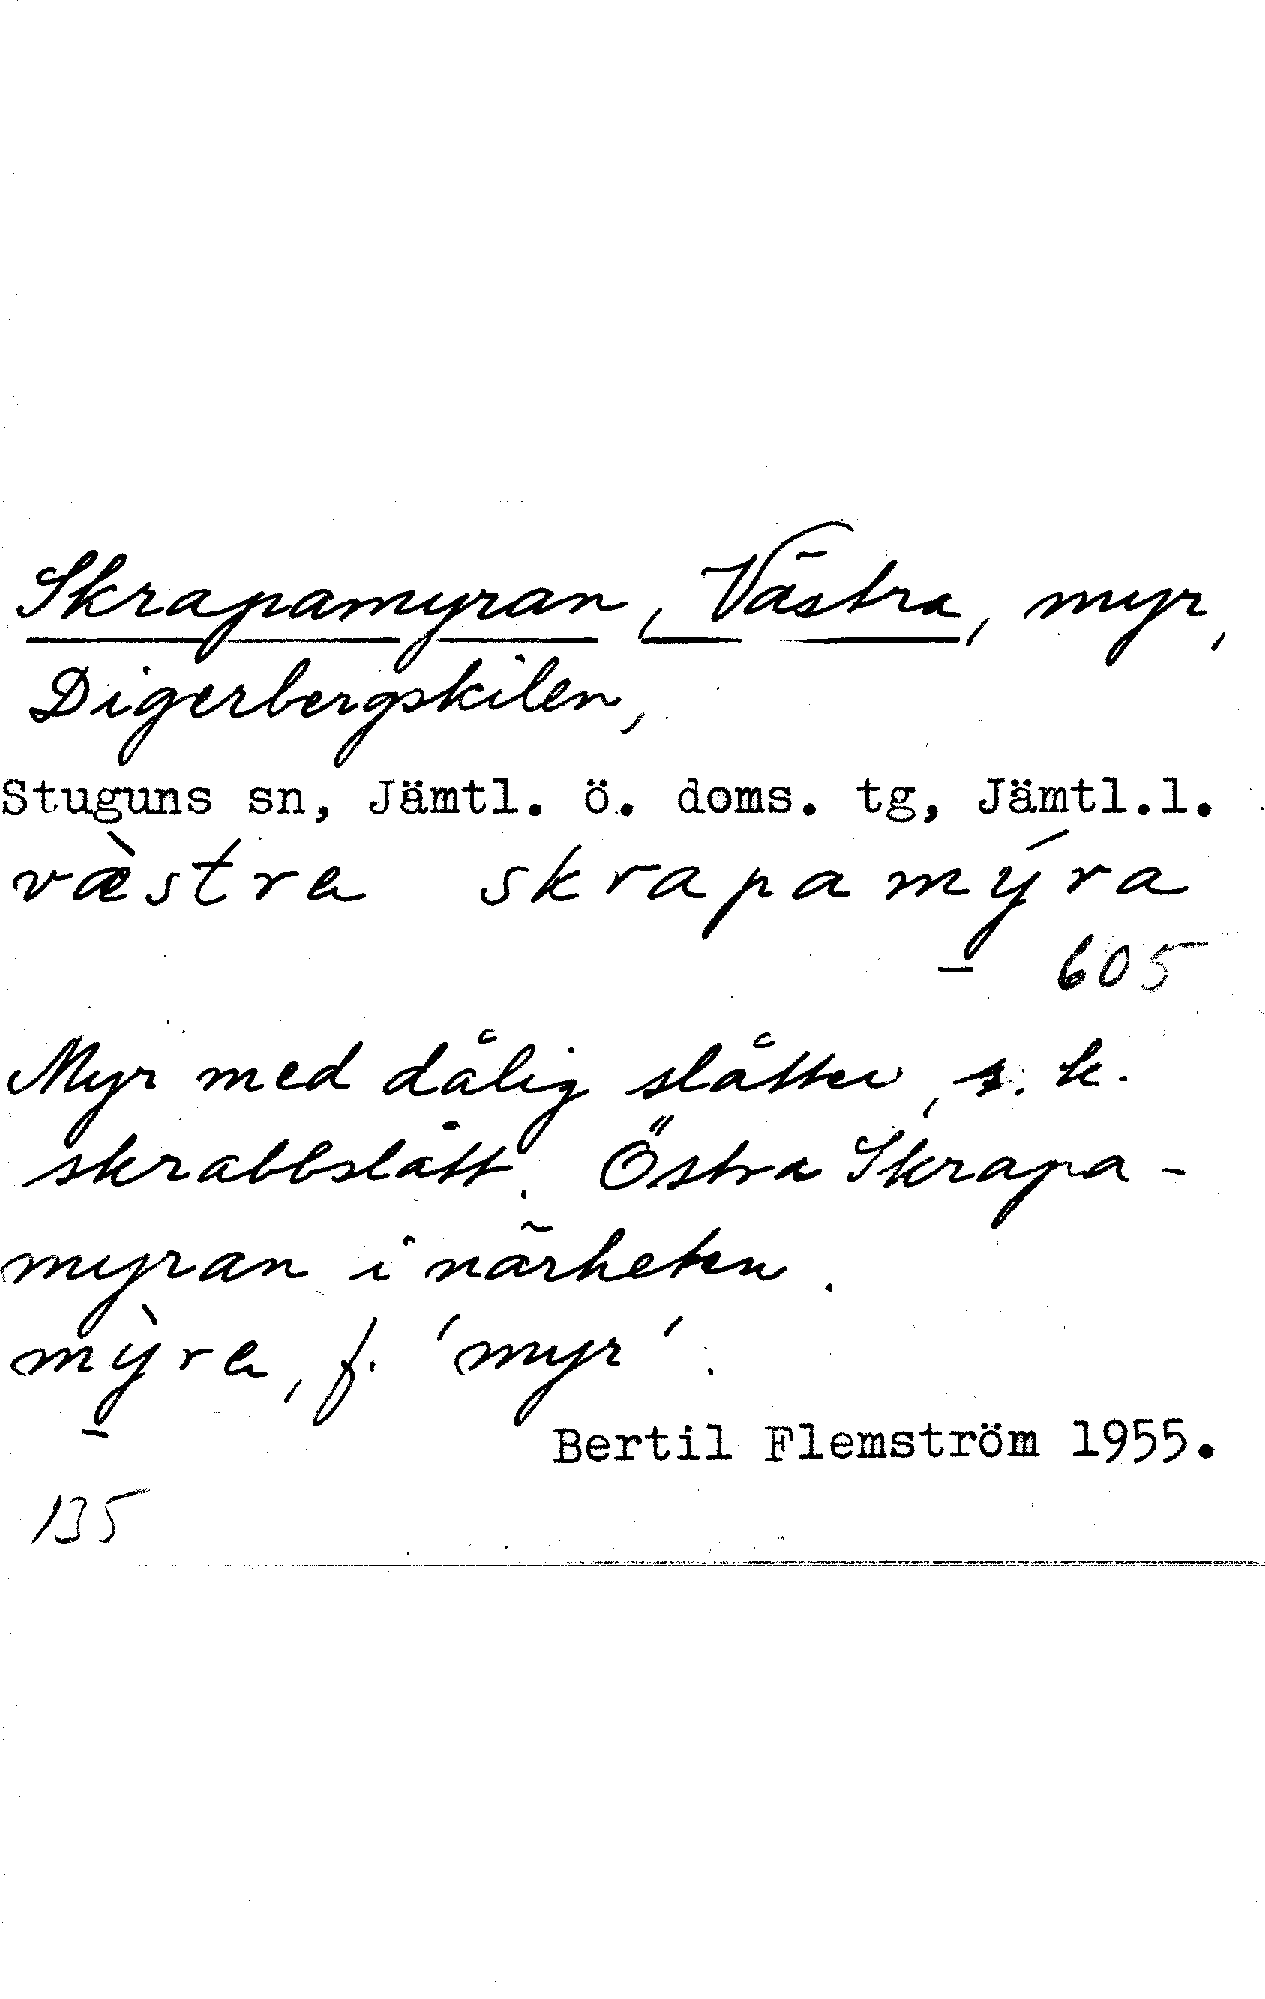 Skrapamyran, Västra, myr,
Digerbergskilen,
Stuguns sn, Jämtl. ö. doms. tg, Jämtl.l.
væ̀stra skrapamýra
– 605
Myr med dålig slåtter, s.k.
skrabbslått. Östra Skrapa-
myran i närheten.
mỳra, f. 'myr'.
Bertil Flemström 1955.
135